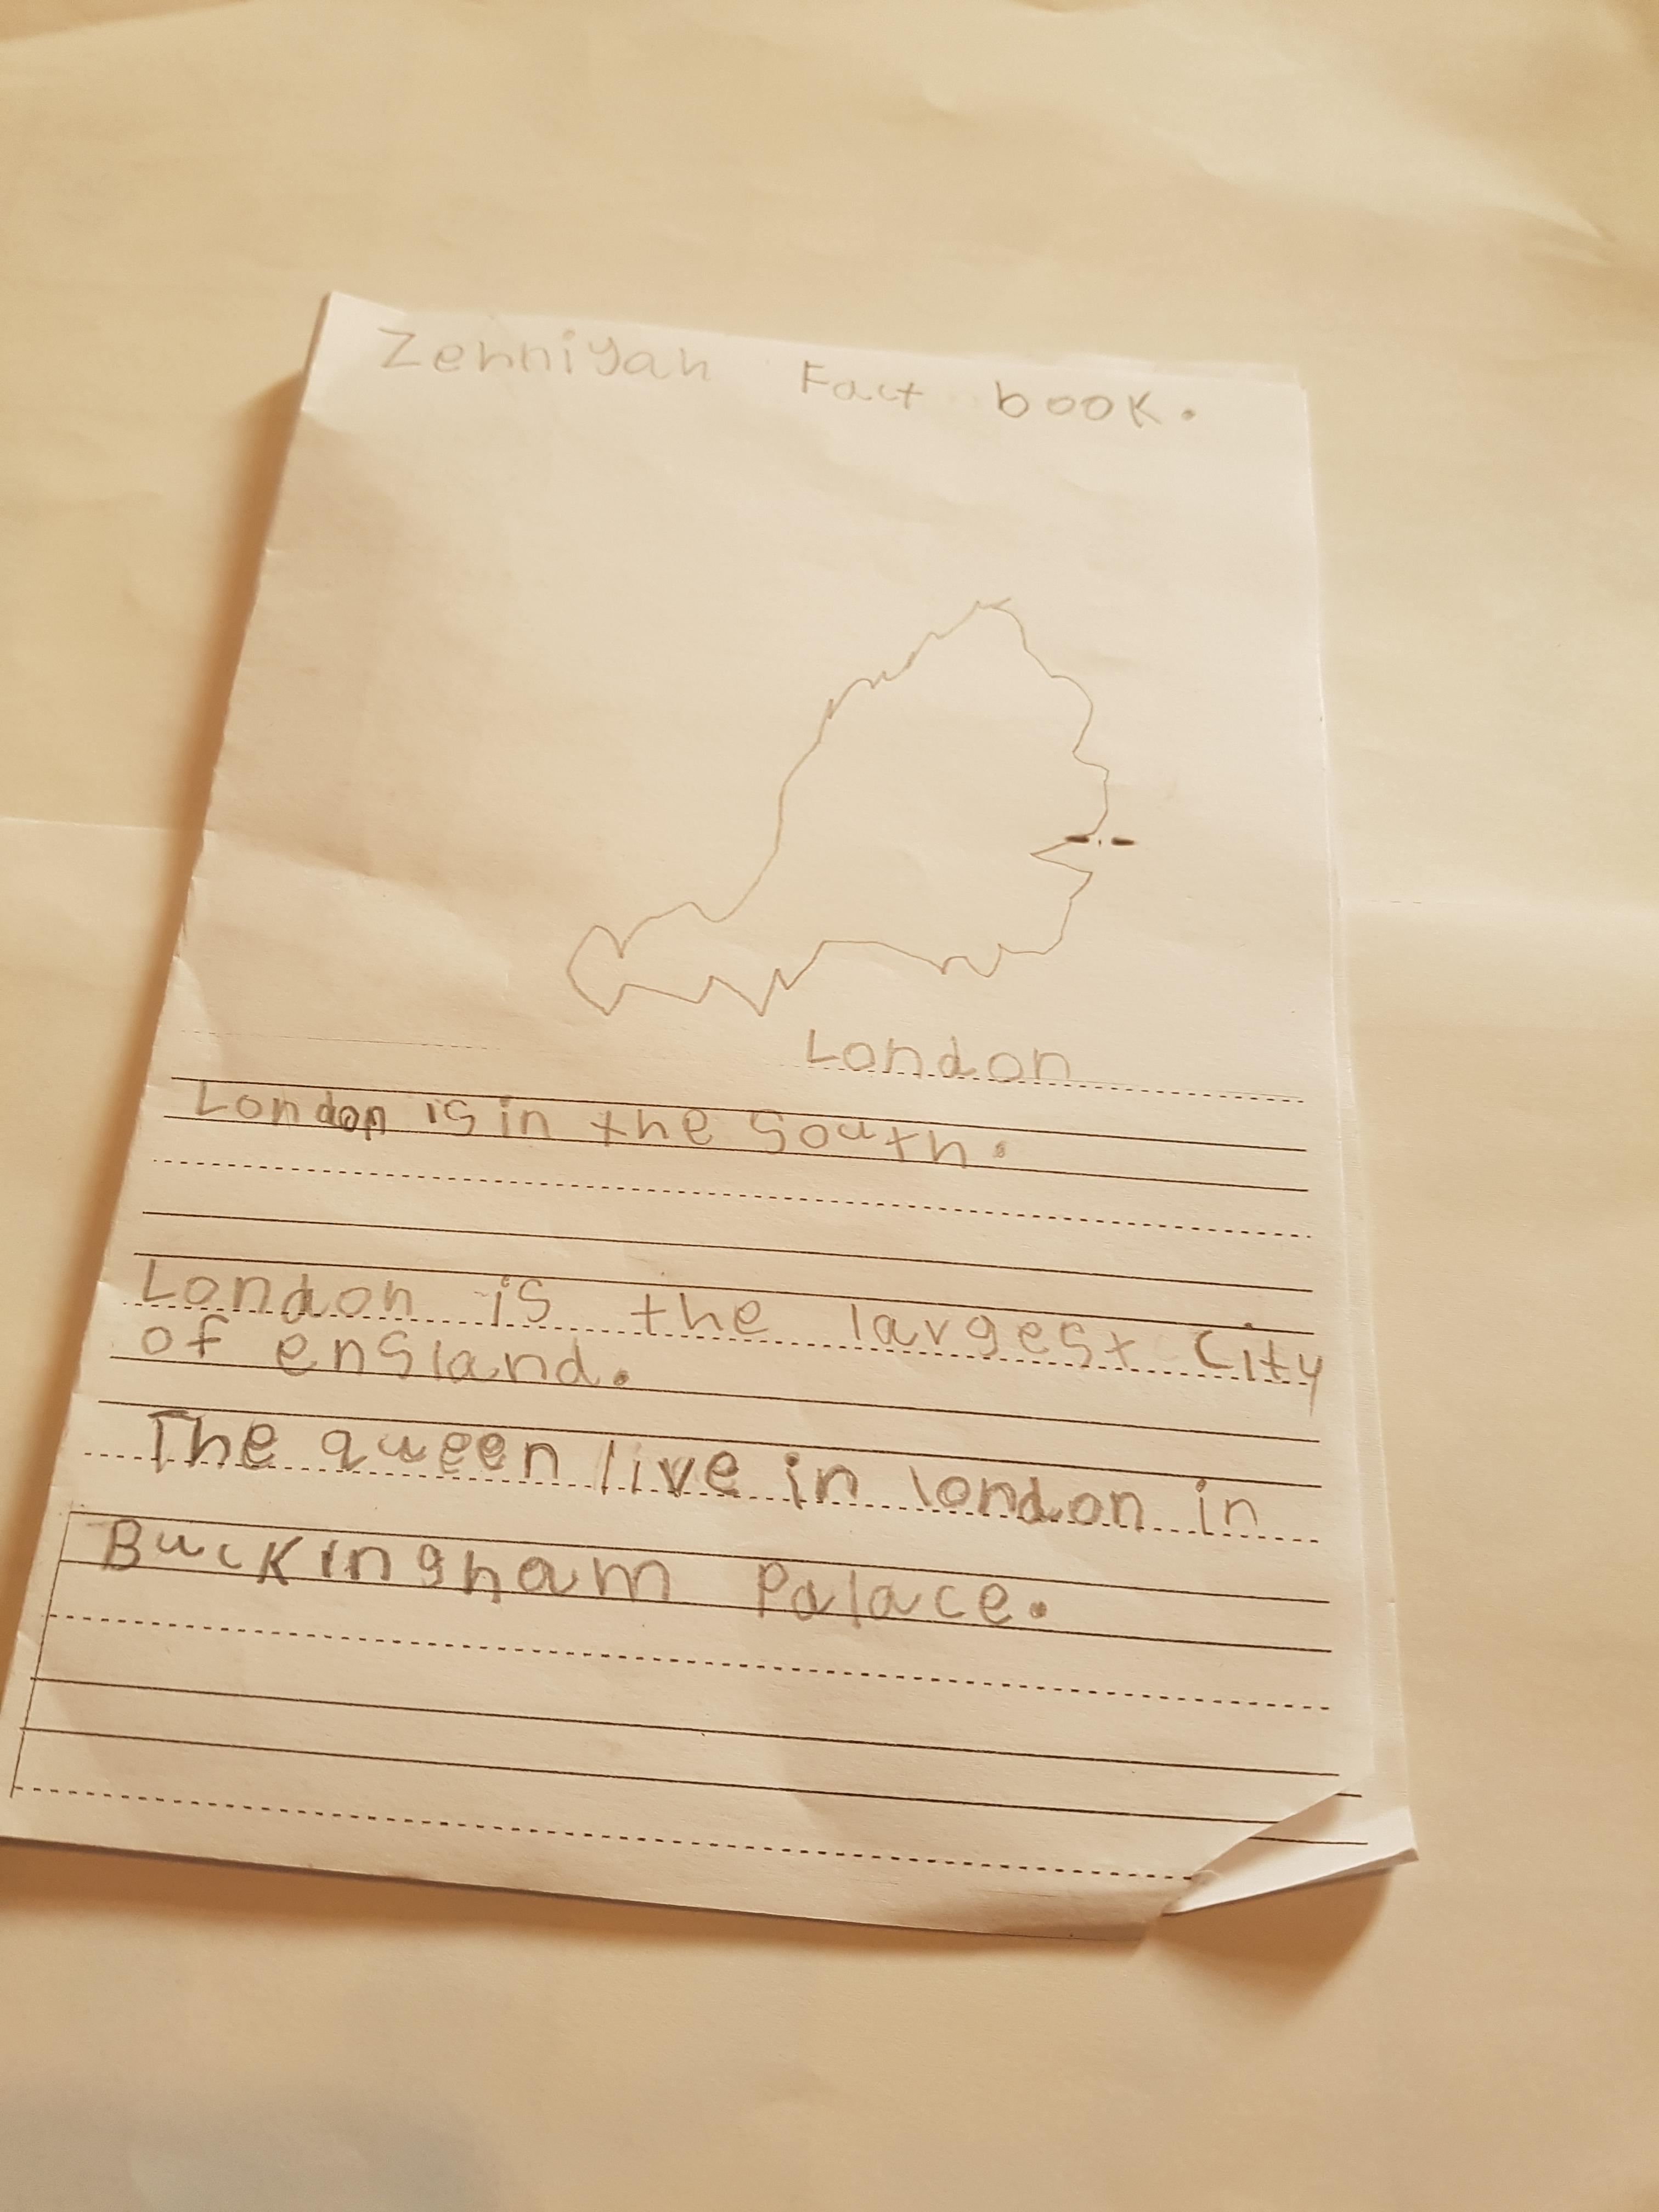 Zehniyah Fact book.
London
London is in the south.
London is the largest city
of england.
The queen live in london in
Buckingham Palace.